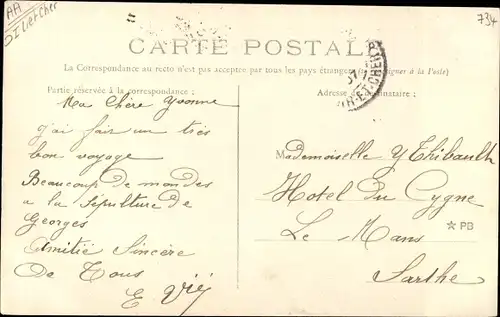 AA
DI Loir et Cher
734
CARTE POSTALE
La Correspondance au recto n'est pas acceptée par tous les pays étrangers (se renseigner à la Poste)
Partie réservée à la correspondance :
Adresse du destinataire :
ET-CHER
Ma Chère Yvonne
j'ai fair un très
bon voyage
Beaucoup de mondes
a la Sepulture de
Georges
Amitié Sincère
De Tous
E
Mademoiselle Y Thibault
Hotel Du Cygne
Le Mans
Sarthe
☆ PB